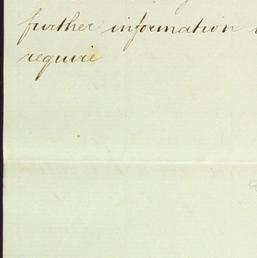 further information
require